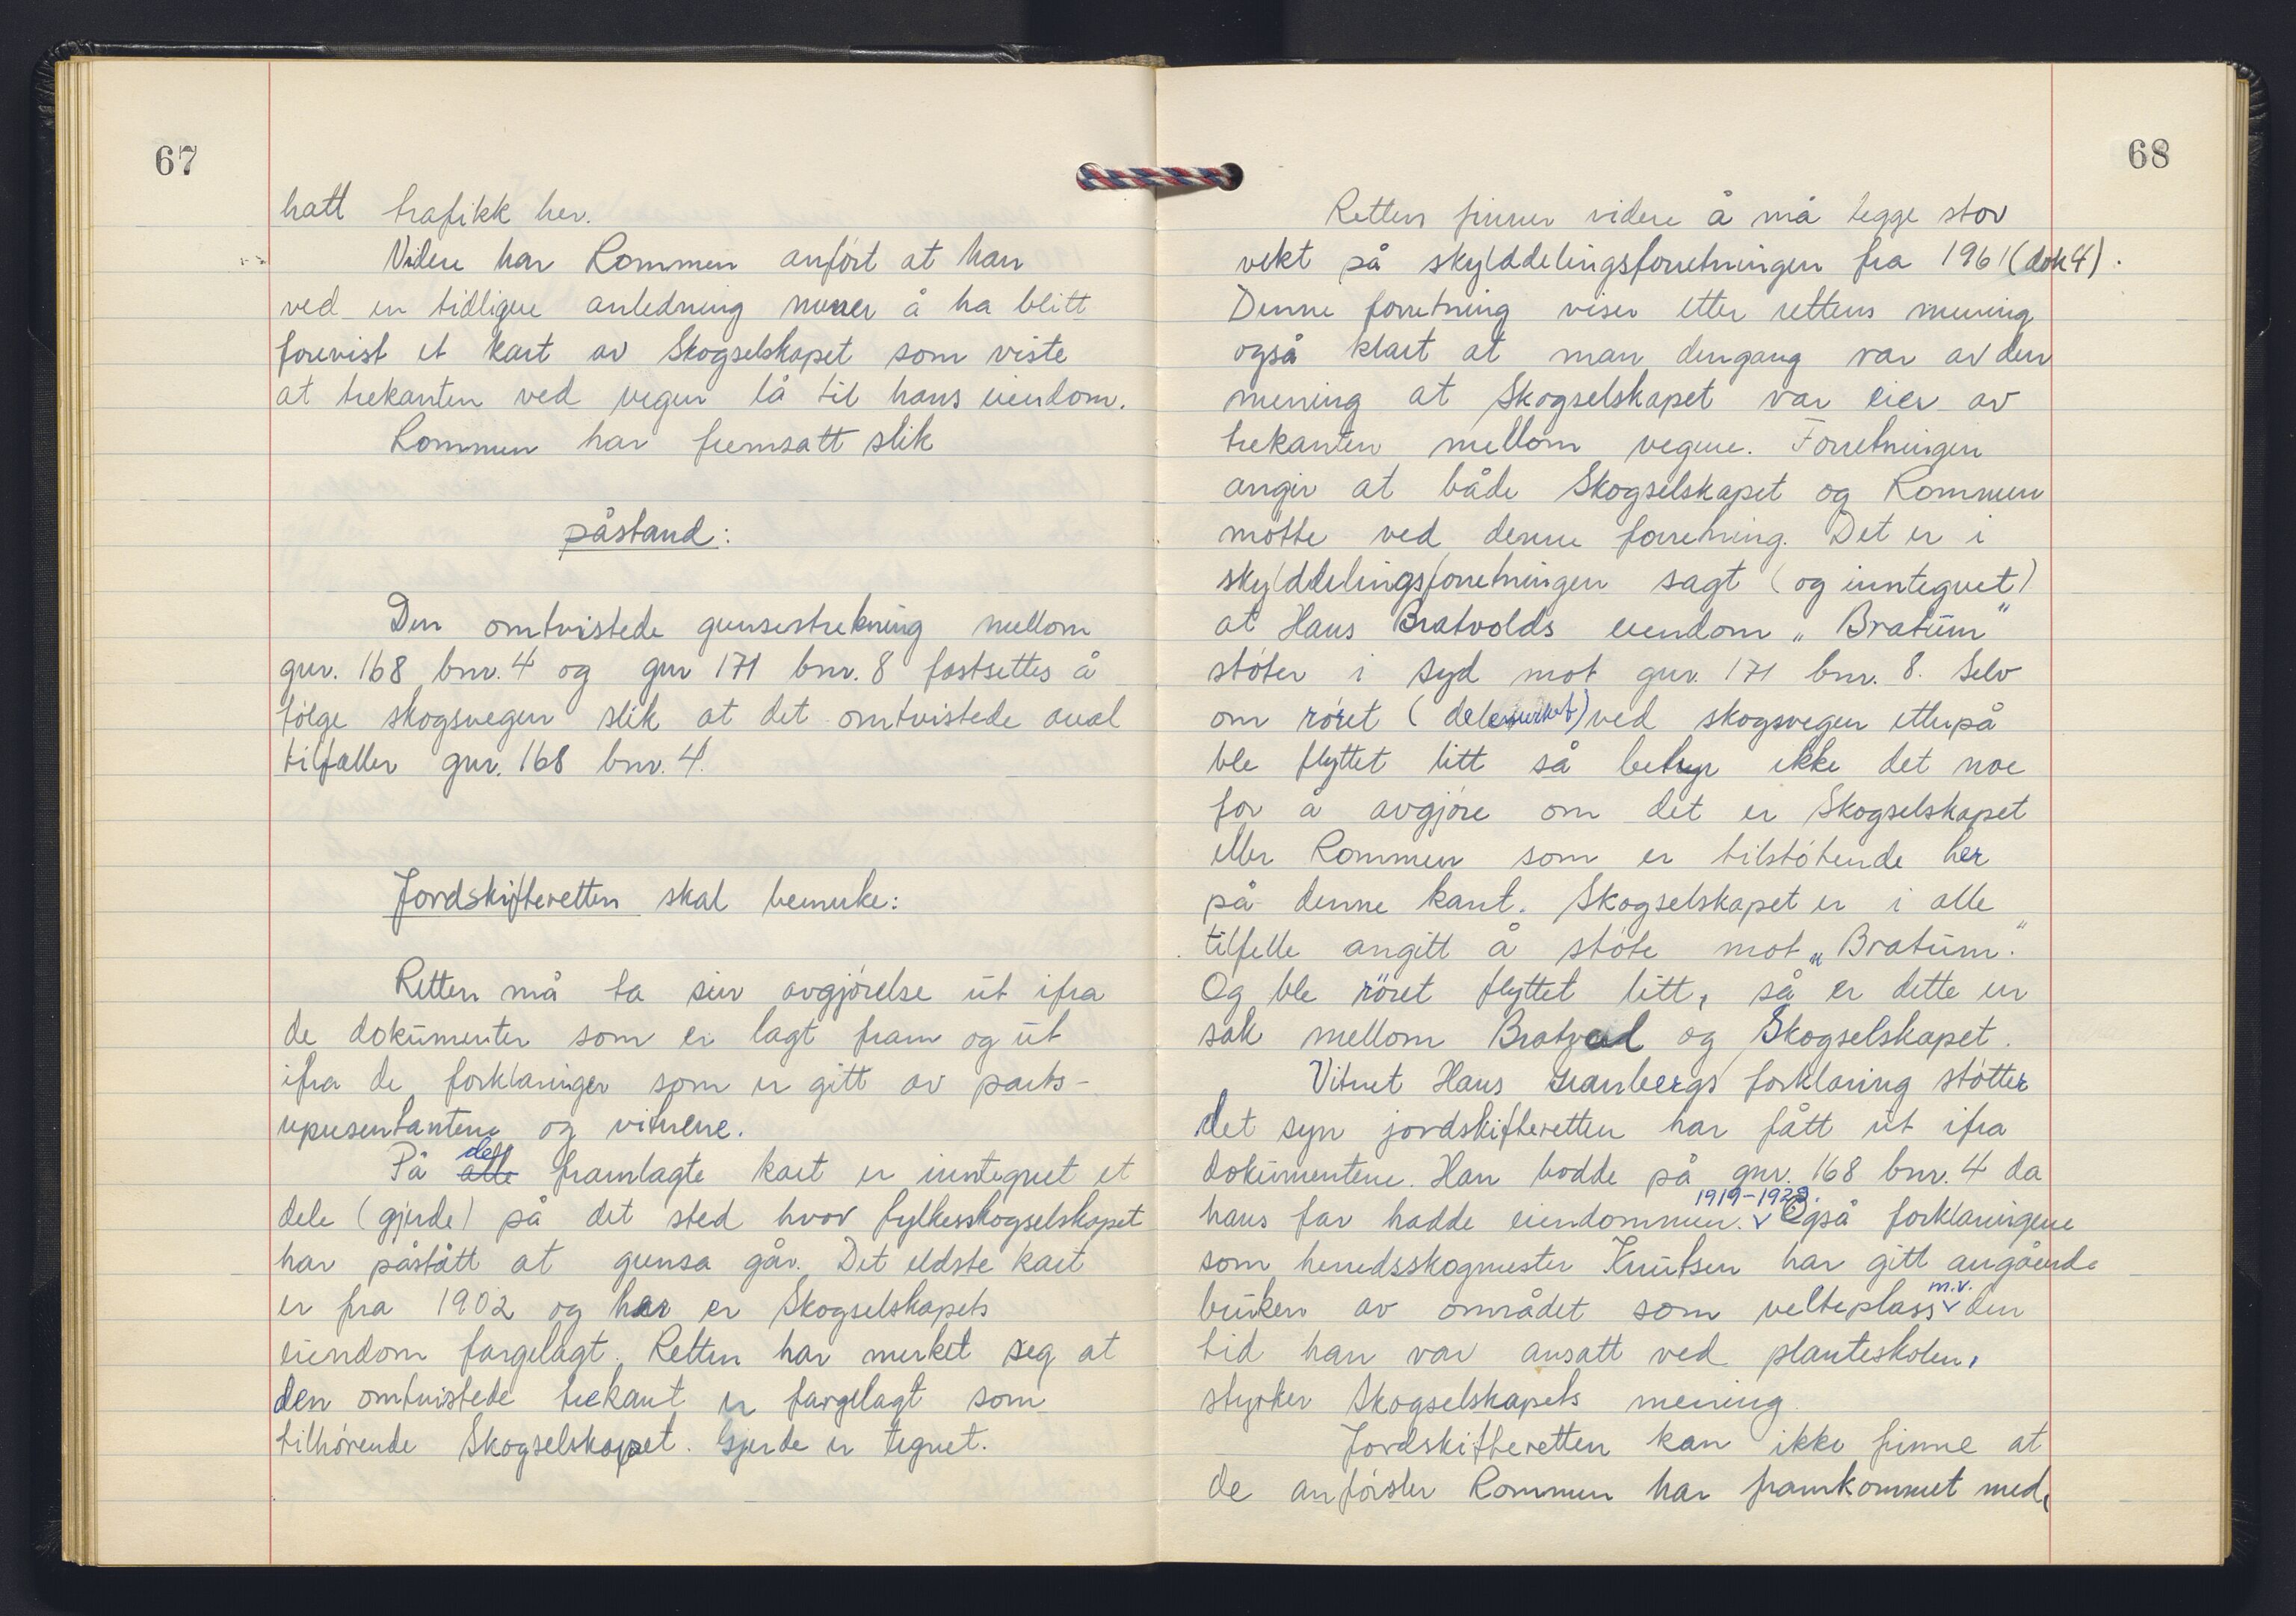 67
hatt trafikk her.
Videre har Rommen anført at han
ved en tidligere anledning mener å ha blitt
forevist et kart av Skogselskapet som viste
at trekanten ved vegen lå til hans eiendom.
Rommen har fremsatt slik
påstand:
Den omtvistede grensestrekning mellom
gnr. 168 bnr. 4 og gnr 171 bnr. 8 fastsettes å
følge skogsvegen slik at det omtvistede areal
tilfaller gnr. 168 bnr. 4.
Jordskifteretten skal bemerke:
Retten må ta sin avgjørelse ut ifra
de dokumenter som er lagt fram og ut
ifra de forklaringer som er gitt av parts-
representantene og vitnene.
det
På alle framlagte kart er inntegnet et
dele (gjerde) på det sted hvor fylkesskogselskapet
har påstått at grensa går. Det eldste kart
er fra 1902 og her er Skogselskapets
eiendom fargelagt. Retten har merket seg at
den omtvistede trekant er fargelagt som
tilhørende Skogselskapet. Gjerde er tegnet.
68
Retten finner videre å må legge stor
vekt på skylddelingsforretningen fra 1961 (dok 4).
Denne forretning viser etter rettens mening
også klart at man dengang var av den
mening at Skogselskapet var eier av
trekanten mellom vegene. Forretningen
angir at både Skogselskapet og Rommen
møtte ved denne forretning. Det er i
skylddelingsforretningen sagt (og inntegnet)
at Hans Bratvolds eiendom „Bratum"
støter i syd mot gnr. 171 bnr. 8. Selv
om røret (delemerket) ved skogsvegen etterpå
ble flyttet litt så betyr ikke det noe
for å avgjøre om det er Skogselskapet
eller Rommen som er tilstøtende her
på denne kant. Skogselskapet er i alle
tilfelle angitt å støte mot „Bratum."
Og ble röret flyttet litt, så er dette en
sak mellom Bratvol og Skogselskapet.
Vitnet Hans Granbergs forklaring støtter
det syn jordskifteretten har fått ut ifra
dokumentene. Han bodde på gnr. 168 bnr. 4 da
1919-1928.
hans far hadde eiendommen. Også forklaringene
som herredsskogmester Knutsen har gitt angående
m.v.
bruken av området som velteplass den
tid han var ansatt ved planteskolen,
styrker Skogselskapets mening.
Jordskifteretten kan ikke finne at
de anførsler Rommen har framkommet med,